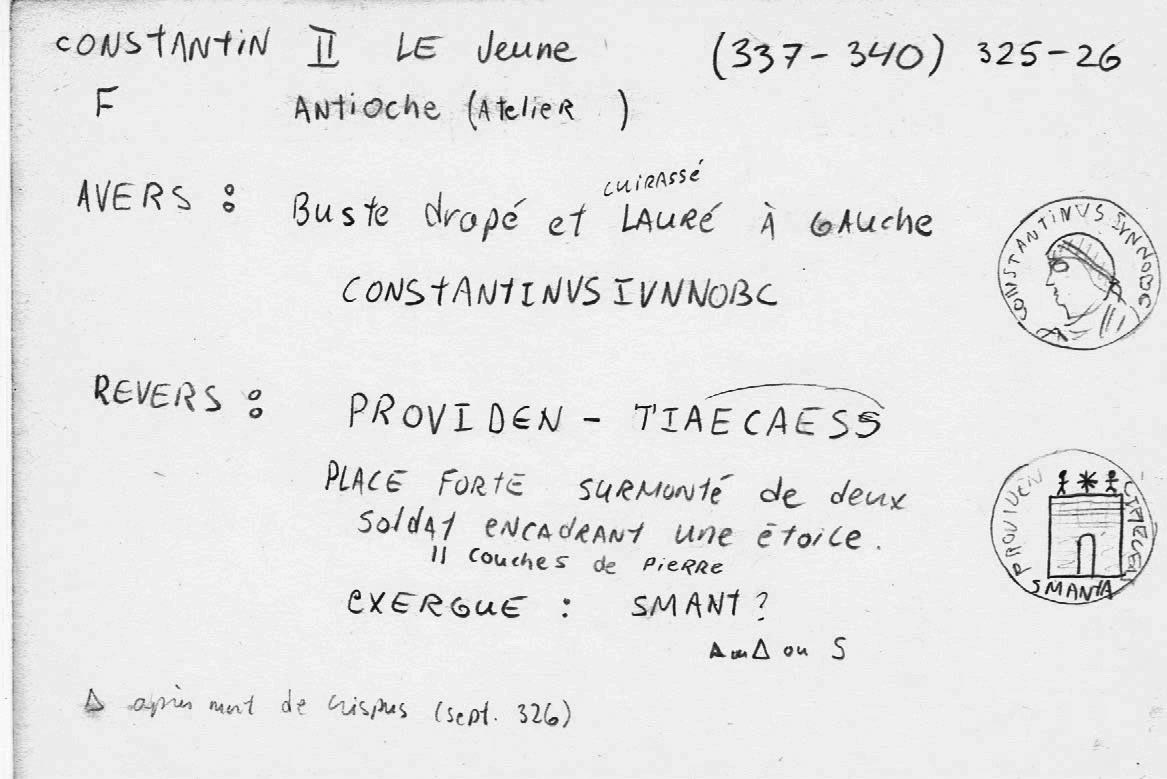 CONSTANTIN II LE Jeune (337-340) 325-26
F ANTioche (AtelieR )
AVERS : Buste drapé et LAURÉ À GAuche
CUIRASSÉ
CONSTANTINVSIVNNOBC
CONSTANTINVS IVNNOBC
REVERS : PROVIDEN - TIAECAESS
PLACE FORTE SURMONTÉ de deux
SoldAT ENCADRANT une étoile.
11 couches de PieRRe
EXERGUE : SMANT ?
Δ ou S
PROVIDEN
SMANTA
Δ après mort de Crispus (sept. 326)